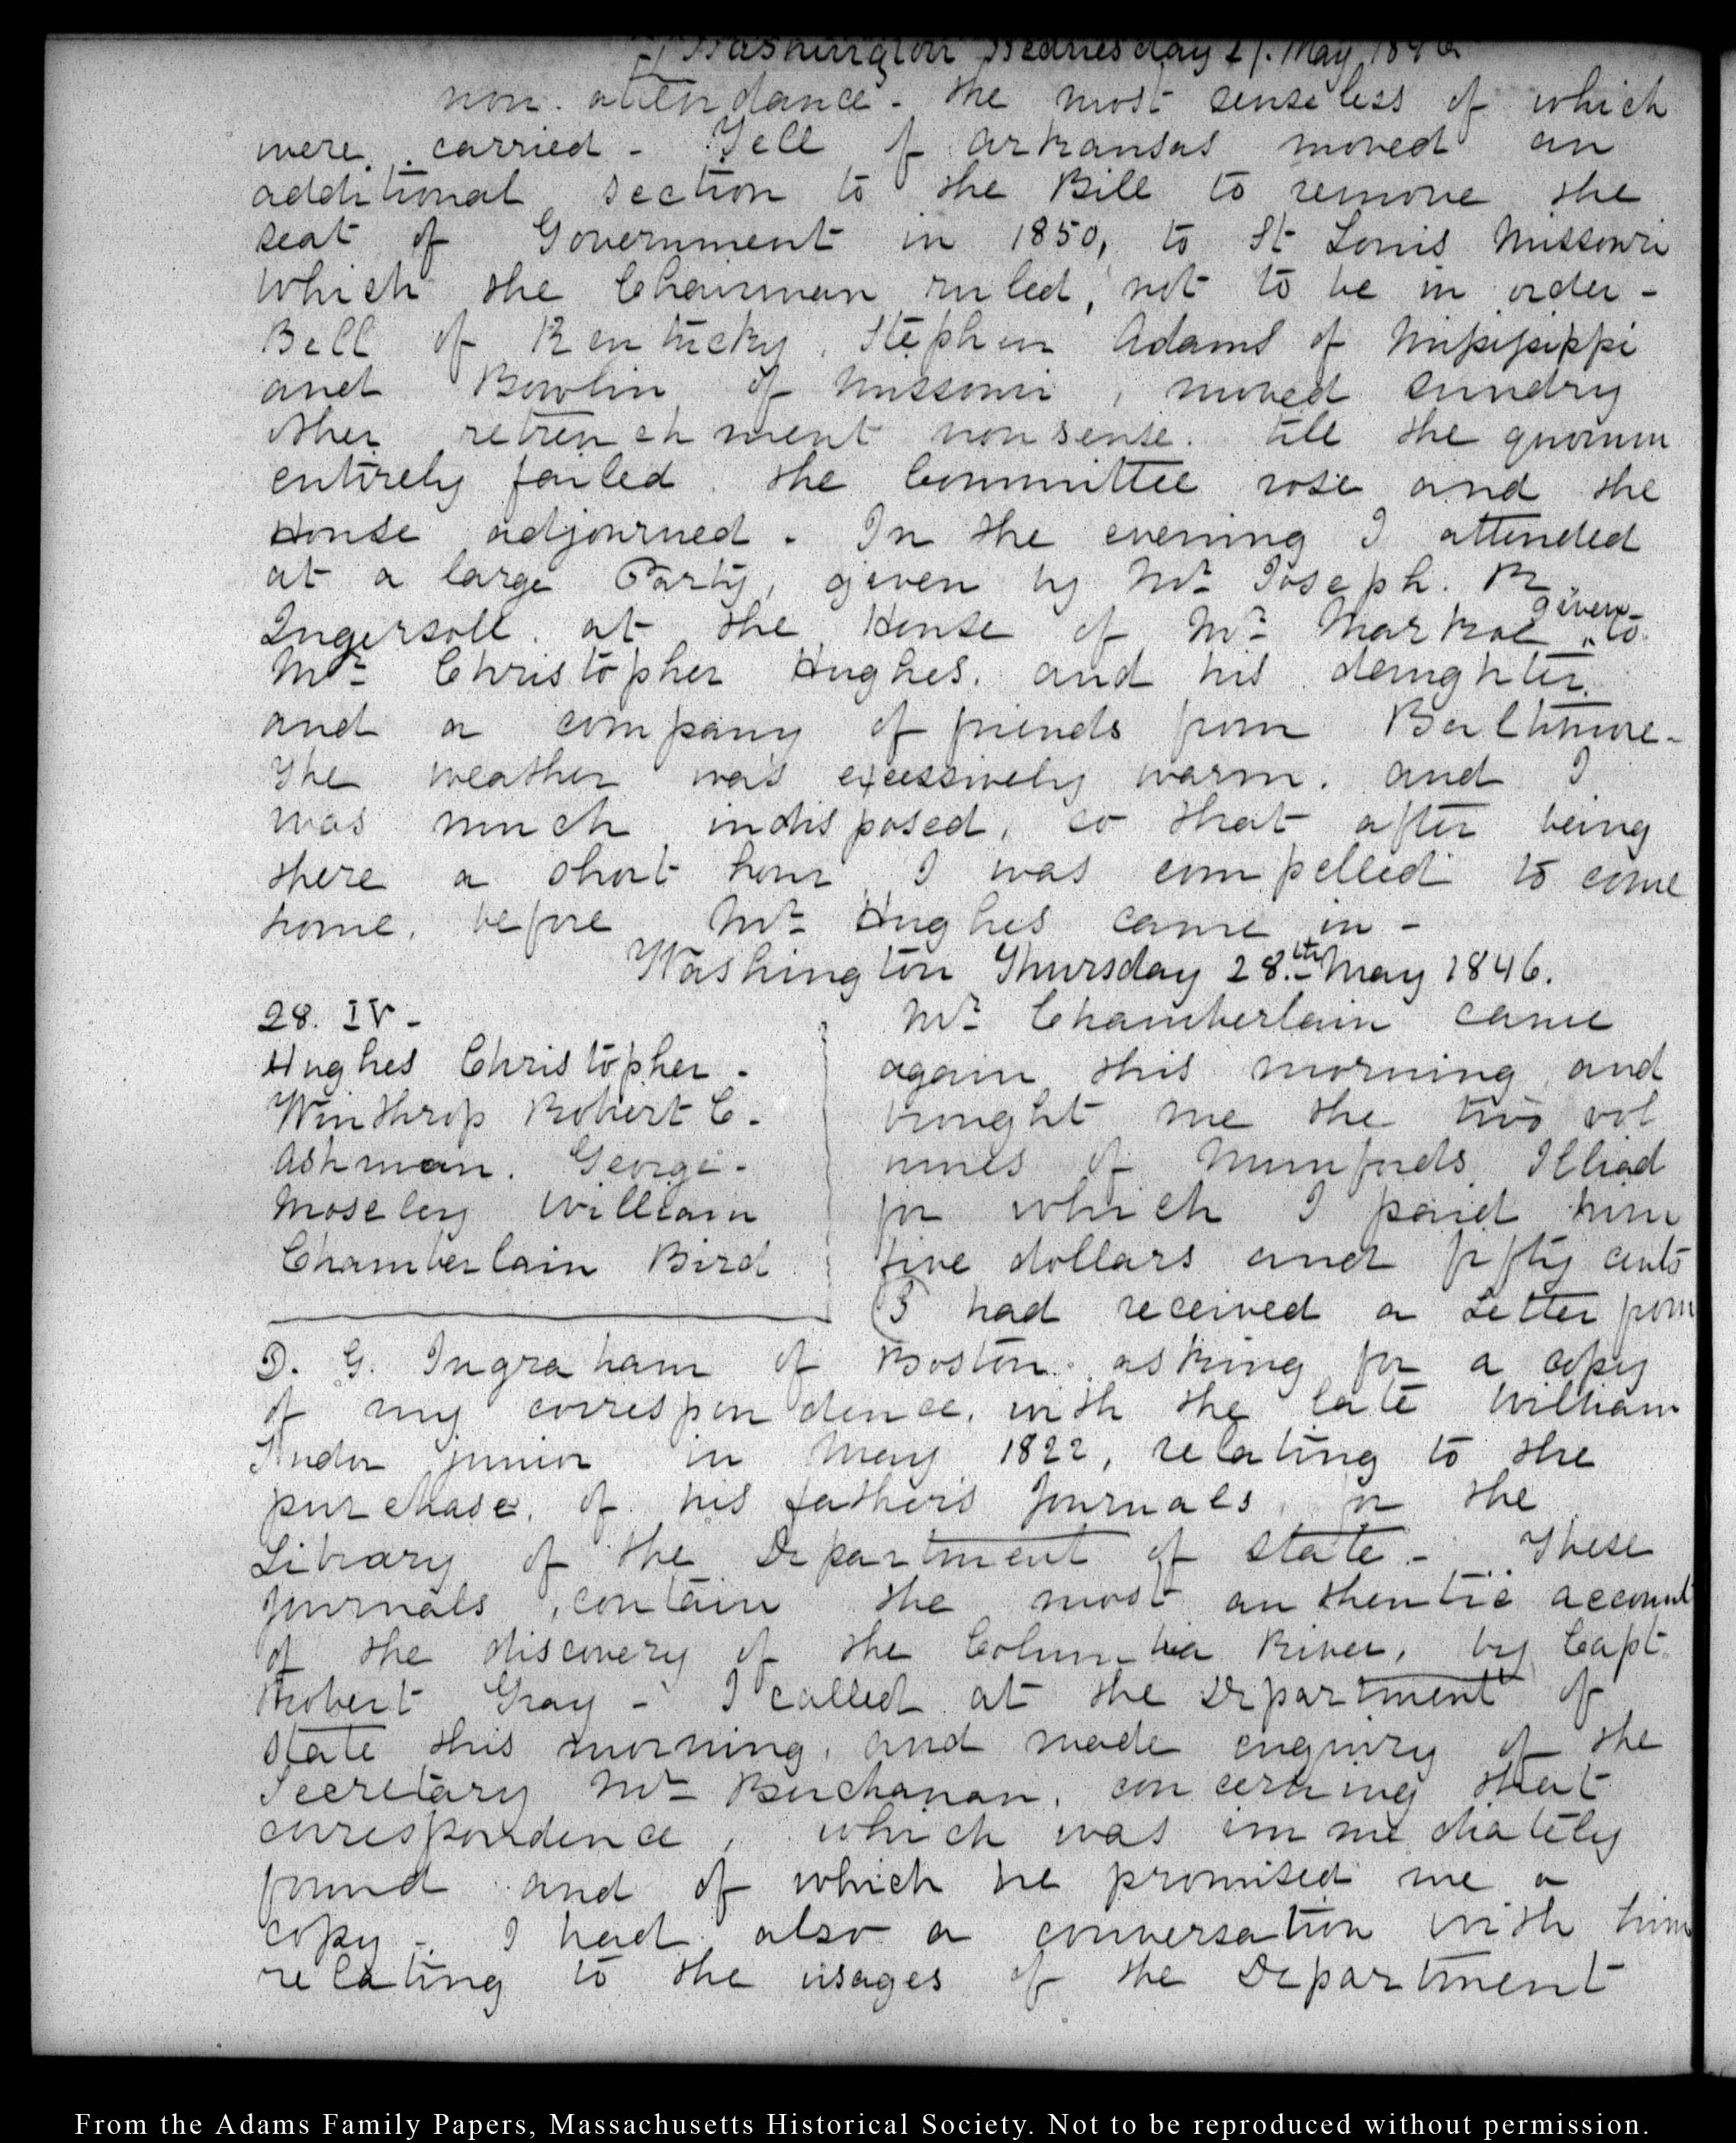 Washington Wednesday 27. May 1846
non. attendance - the most senseless of which
were carried - Yell of Arkansas moved an
additional section to the Bill to remove the
seat of Government in 1850, to St Louis Missouri
which the Chairman ruled, not to be in order -
Bell of Kentucky, Stephen Adams of Mississippi
and Bowlin of Missouri, moved sundry
other retrenchment nonsense. till the quorum
entirely failed. the Committee rose and the
House adjourned. In the evening I attended
at a large Party, given by Mr Joseph. R.
Ingersoll. at the House of Mr Markoe given to
Mr Christopher Hughes. and his daughter.
and a company of friends from Baltimore -
The weather was excessively warm. and I
was much indisposed, so that after being
there a short hour I was compelled to come
home, before Mr Hughes came in -
Washington Thursday 28.th May 1846.
28. IV -
Hughes Christopher -
Winthrop Robert C -
Ashman. George -
Moseley William
Chamberlain Bird
Mr Chamberlain came
again this morning and
brought me the two vol
umes of Munfords Illiad
for which I paid him
five dollars and fifty cents
I had received a Letter from
D. G. Ingraham of Boston. asking for a copy
of my correspondence, with the late William
Tudor junior in May 1822, relating to the
purchase, of his father's Journals, for the
Library of the Department of State - These
Journals, contain the most authentic account
of the discovery of the Columbia River, by Capt.
Robert Gray - I called at the Department of
State this morning, and made enquiry of the
Secretary Mr Buchanan, concerning that
correspondence, which was immediately
found and of which he promised me a
copy - I had also a conversation with him
relating to the usages of the Department
From the Adams Family Papers, Massachusetts Historical Society. Not to be reproduced without permission.